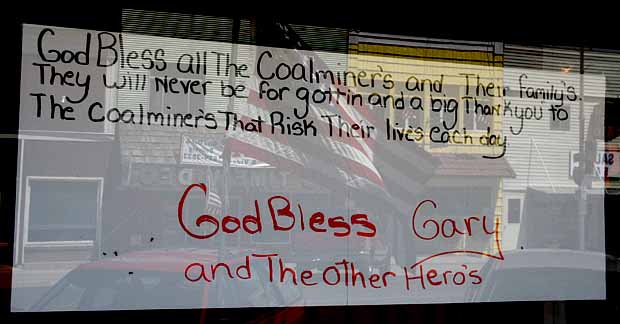 God Bless all The Coalminer's and Their family's.
They will never be for gottin and a big Thank you to
The Coalminer's That Risk Their lives each day
God Bless Gary
and The other Hero's